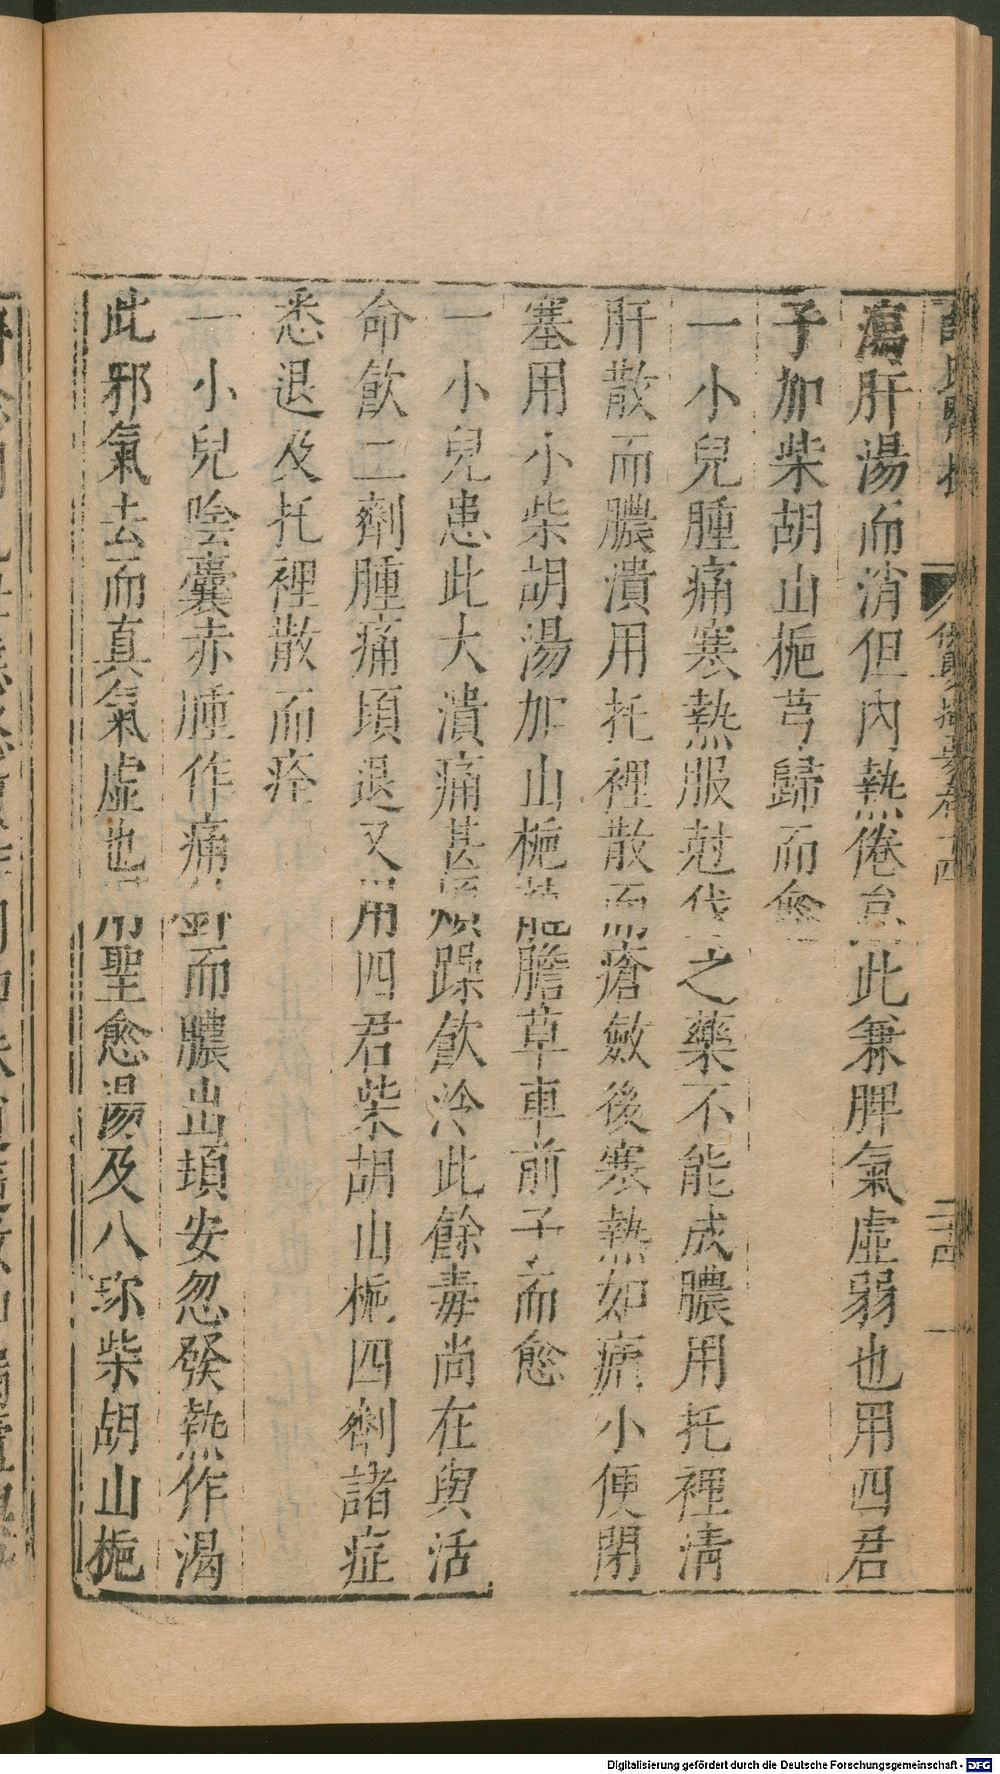 薛氏醫按
保嬰撮要卷十四
二十四
瀉肝湯而消但內熱倦怠此兼脾氣虛弱也用四君
子加柴胡山梔芎歸而愈
一小兒腫痛寒熱服尅伐之藥不能成膿用托裡清
肝散而膿潰用托裡散而瘡斂後寒熱如瘧小便閉
塞用小柴胡湯加山梔龍膽草車前子而愈
一小兒患此大潰痛甚煩躁飲冷此餘毒尚在與活
命飲二劑腫痛頓退又用四君柴胡山梔四劑諸症
悉退及托裡散而痊
一小兒陰囊赤腫作痛針而膿出頓安忽發熱作渴
此邪氣去而真氣虛也用聖愈湯及八珍柴胡山梔
Digitalisierung gefördert durch die Deutsche Forschungsgemeinschaft - DFG